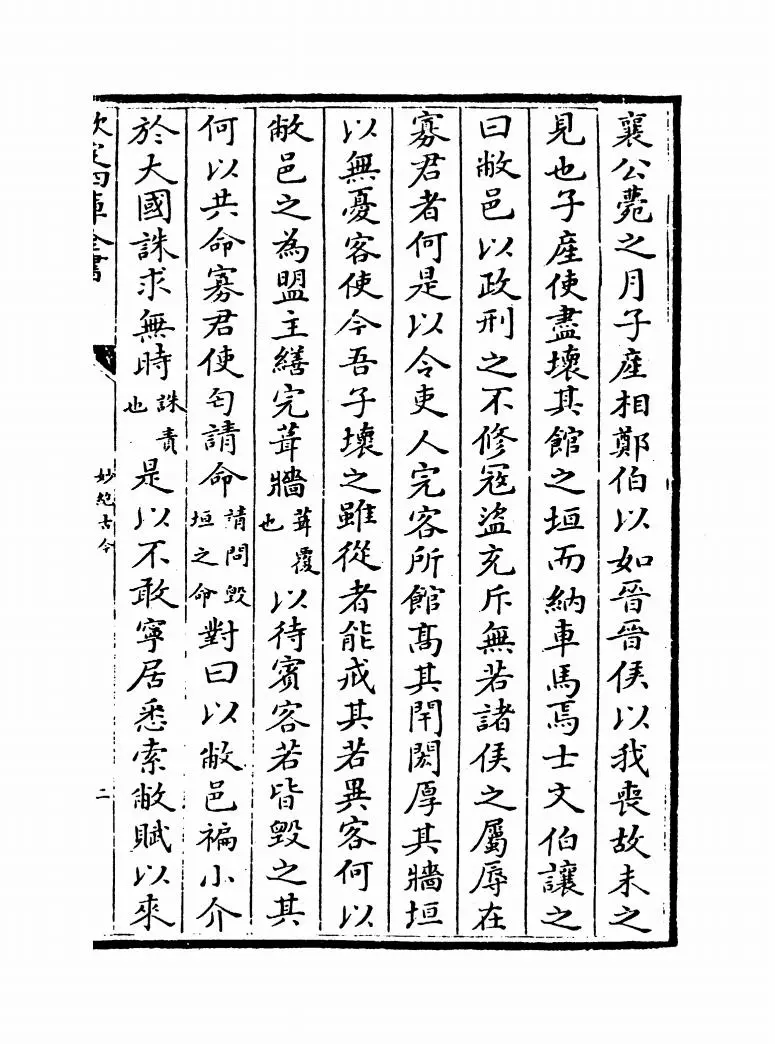 襄公薨之月子産相鄭伯以如晉晉侯以我喪故未之
見也子産使盡壞其館之垣而納車馬焉士文伯讓之
曰敝邑以政刑之不修宼盜充斥無若諸侯之屬辱在
寡君者何是以令吏人完客所館髙其閈閎厚其牆垣
以無憂客使今吾子壞之雖從者能戒其若異客何以
敝邑之為盟主繕完葺牆葺覆也以待賓客若皆毀之其
何以共命寡君使匄請命請問毀垣之命對曰以敝邑褊小介
於大國誅求無時誅責也是以不敢寧居悉索敝賦以來
欽定四庫全書
妙絶古今
二